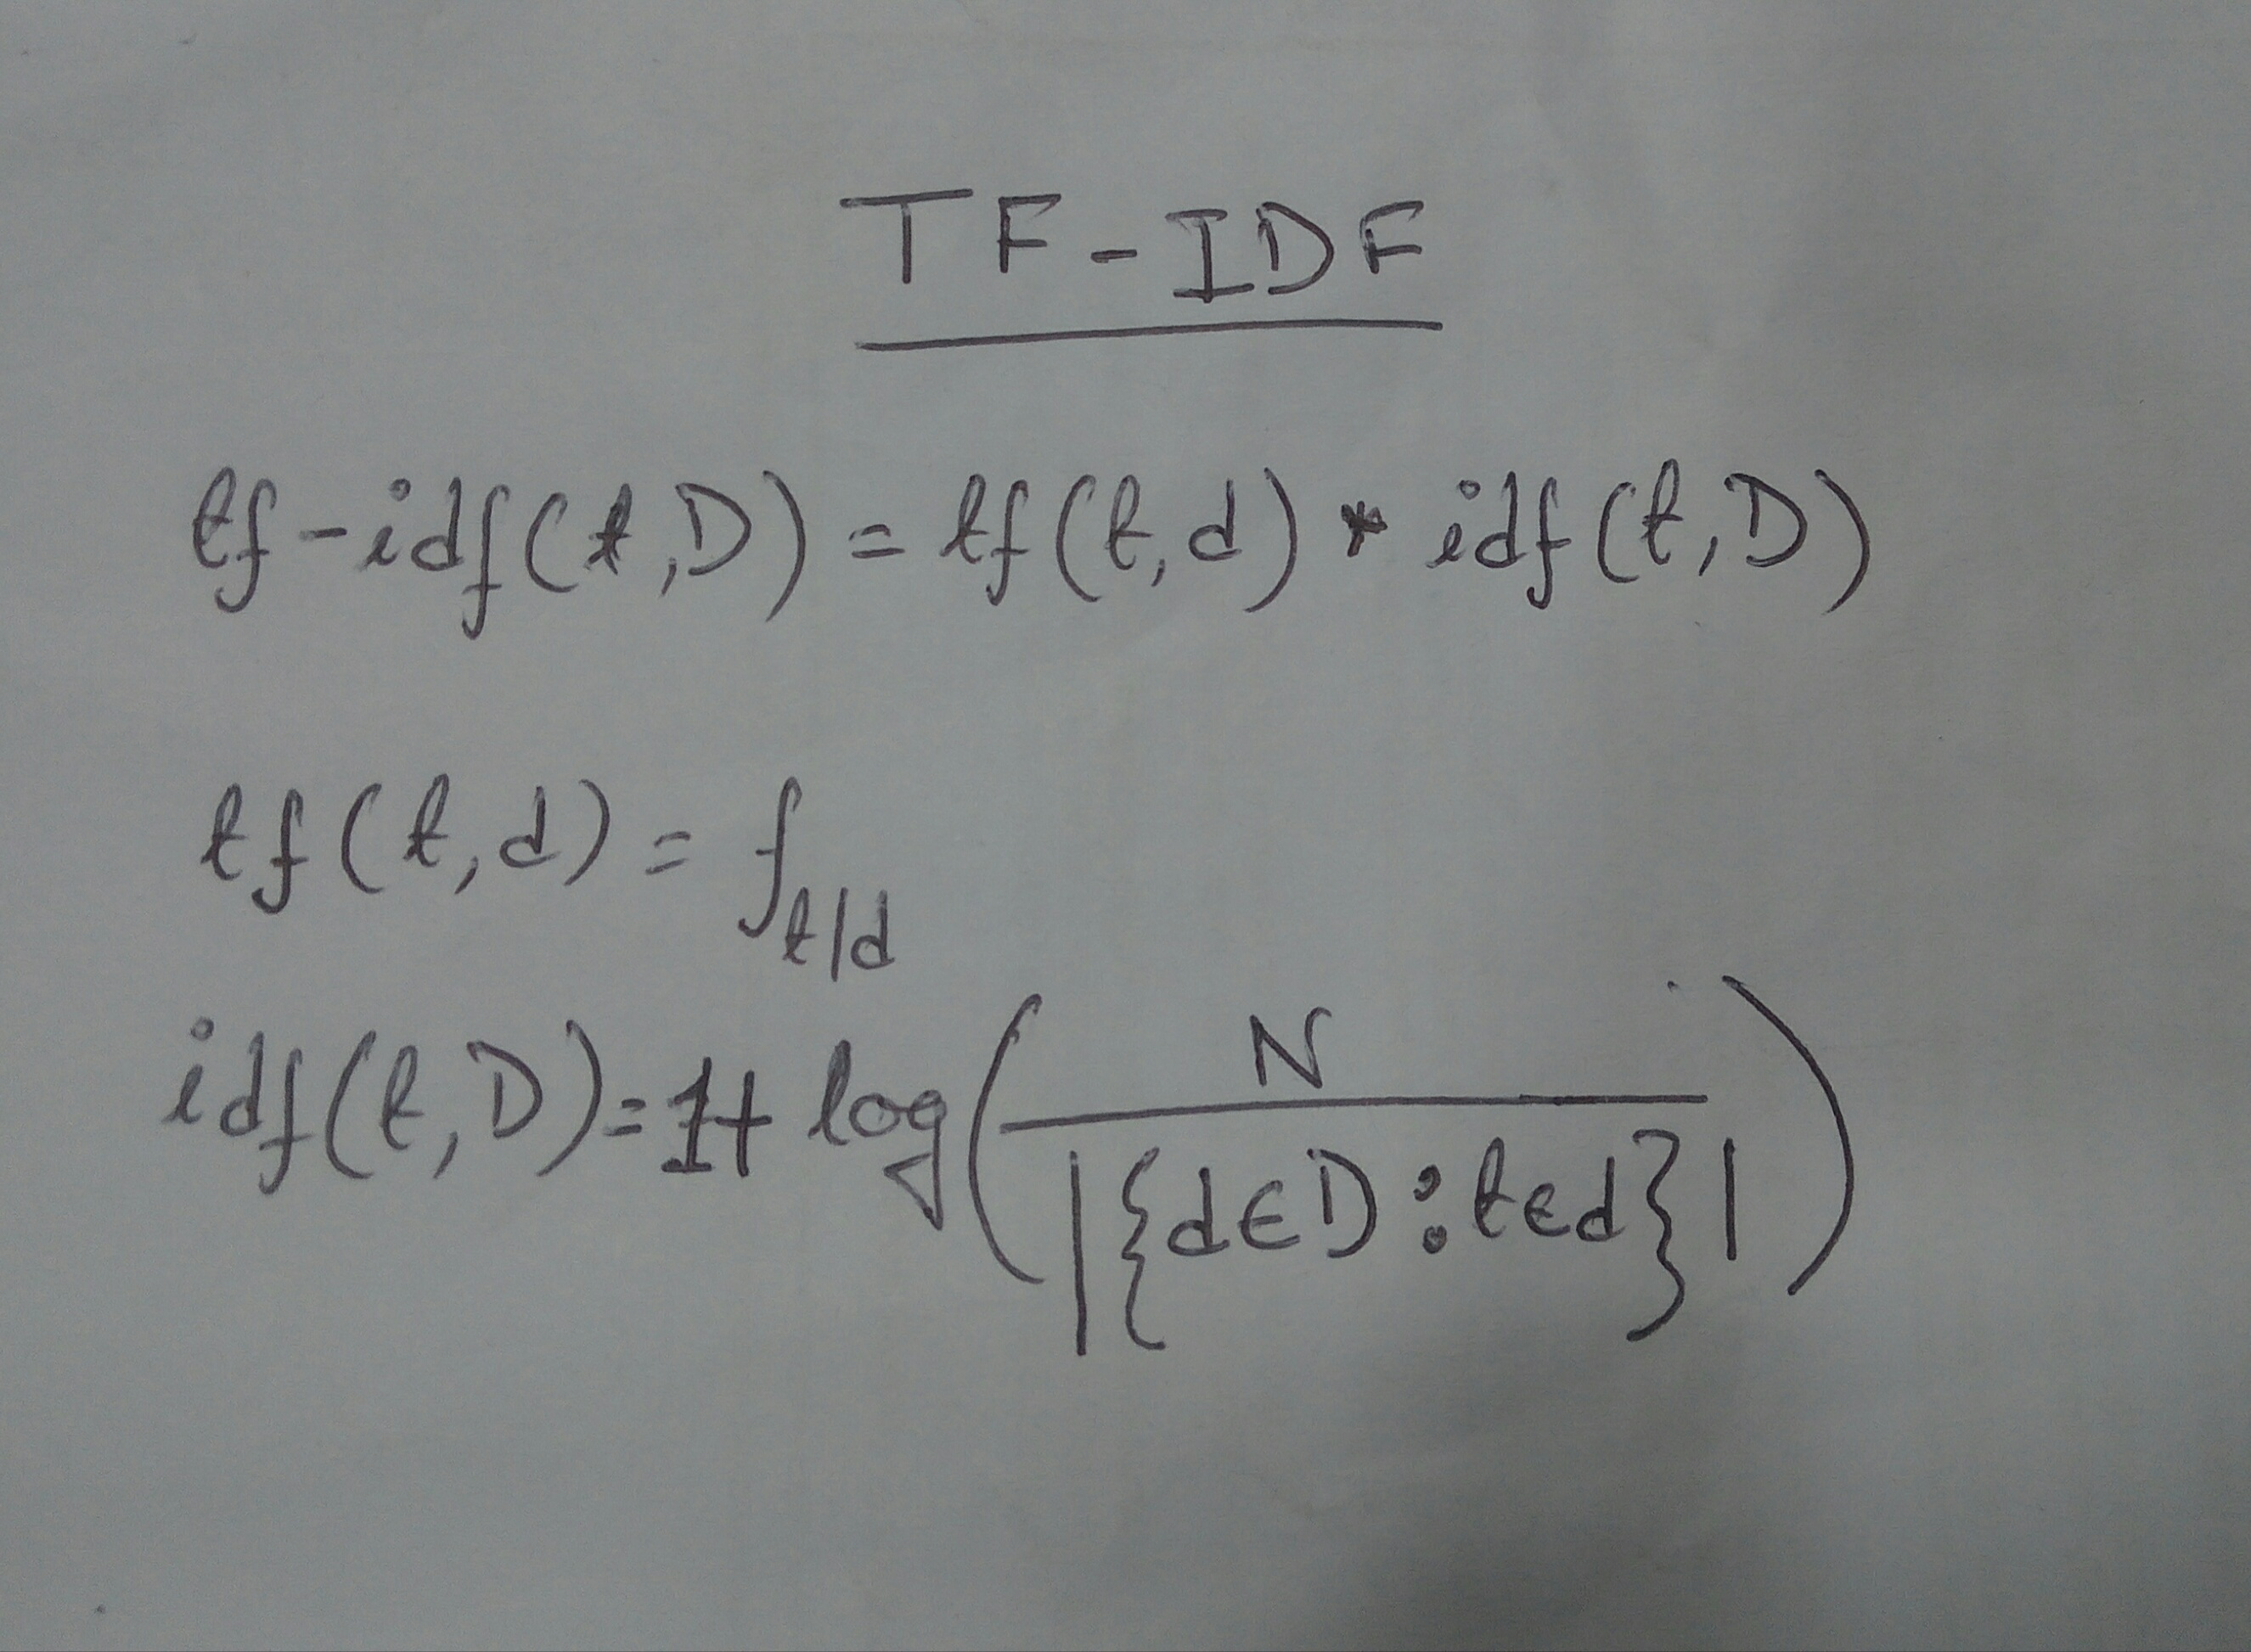 TF-IDF
tf-idf(t,D) = tf(t,d) * idf(t,D)
tf(t,d) = f_{t/d}
idf(t,D) = 1+ log( N / |{d∈D : t∈d}| )